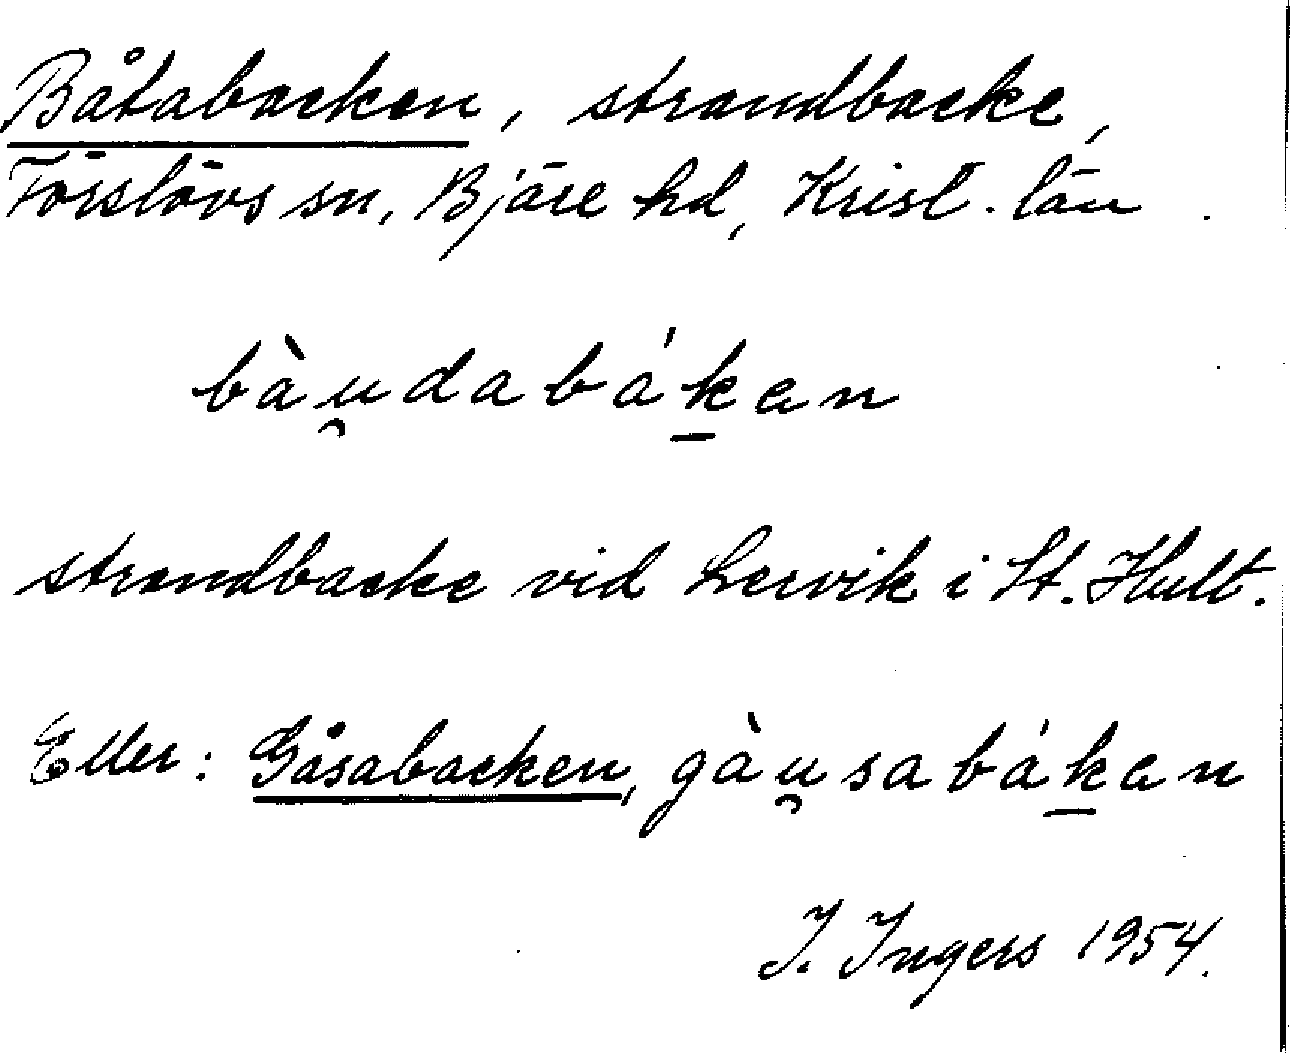 Båtabacken, strandbacke,
Förslövs sn, Bjäre hd, Krist. län.
bàu̯dabák̲ən
strandbacke vid Lervik i St. Hult.
Eller: Gåsabacken, gàu̯sabák̲ən
I. Ingers 1954.